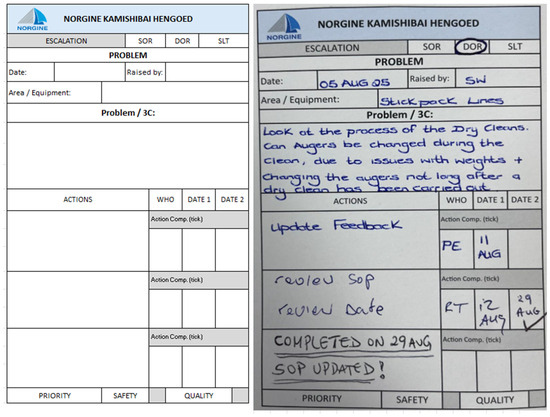 NORGINE
NORGINE KAMISHIBAI HENGOED
ESCALATION SOR DOR SLT
PROBLEM
Date: Raised by:
Area / Equipment:
Problem / 3C:
ACTIONS WHO DATE 1 DATE 2
Action Comp. (tick)
Action Comp. (tick)
Action Comp. (tick)
PRIORITY SAFETY QUALITY
NORGINE
NORGINE KAMISHIBAI HENGOED
ESCALATION SOR DOR SLT
PROBLEM
Date: 05 AUG 25 Raised by: SW
Area / Equipment: Stickpack Lines
Problem / 3C:
Look at the process of the Dry Cleans.
Can Augers be changed during the
Clean, due to issues with weights +
Changing the augers not long after a
dry clean has been carried out
ACTIONS WHO DATE 1 DATE 2
Update Feedback
Action Comp. (tick)
PE 11 AUG
review SOP
Action Comp. (tick)
review Date RT 12 AUG 29 AUG
COMPLETED ON 29 AUG
Action Comp. (tick)
SOP UPDATED!
PRIORITY SAFETY QUALITY